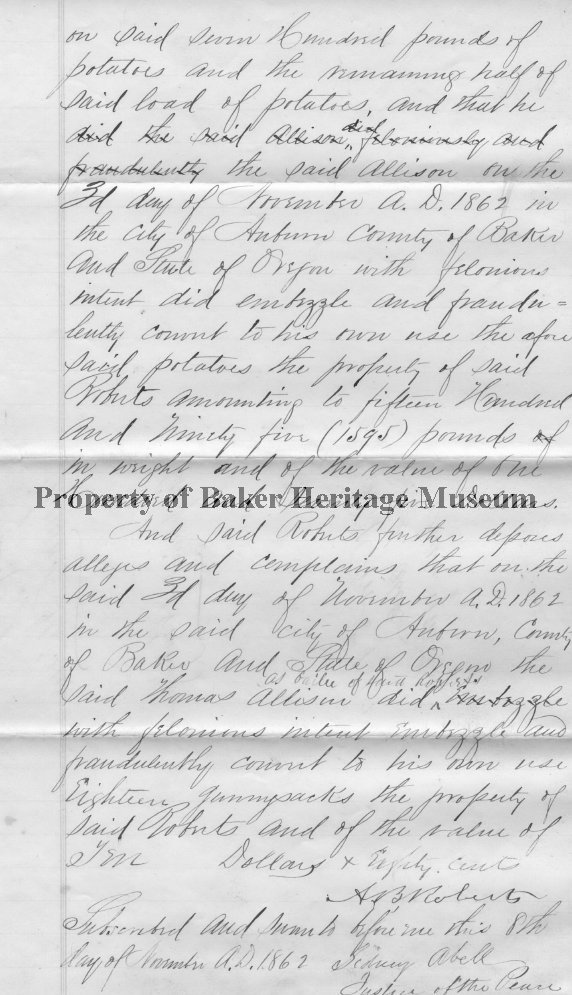 on said seven Hundred pounds of
potatoes and the remaining half of
said load of potatoes, and that he
did the said Allison, did feloniously and
fraudulently the said Allison on the
3d day of November A. D. 1862 in
the city of Auburn County of Baker
and State of Oregon with felonious
intent did embezzle and fraudu=
lently convert to his own use the afore
said potatoes the property of said
Roberts amounting to fifteen Hundred
and Ninety five (1595) pounds of
in weight and of the value of One
Property of Baker Heritage Museum
And said Roberts further deposes
alleges and complains that on the
said 3d day of November A.D. 1862
in the said city of Auburn, County
of Baker and State of Oregon the
as bailee of said
said Thomas Allison did embezzle
with felonious intent Embezzle and
fraudulently convert to his own use
Eighteen gunnysacks the property of
said Roberts and of the value of
Ten Dollars & Eighty cents
A B Roberts
Subscribed and sworn to before me this 8th
day of November A.D. 1862 Sidney Abell
Justice of the Peace